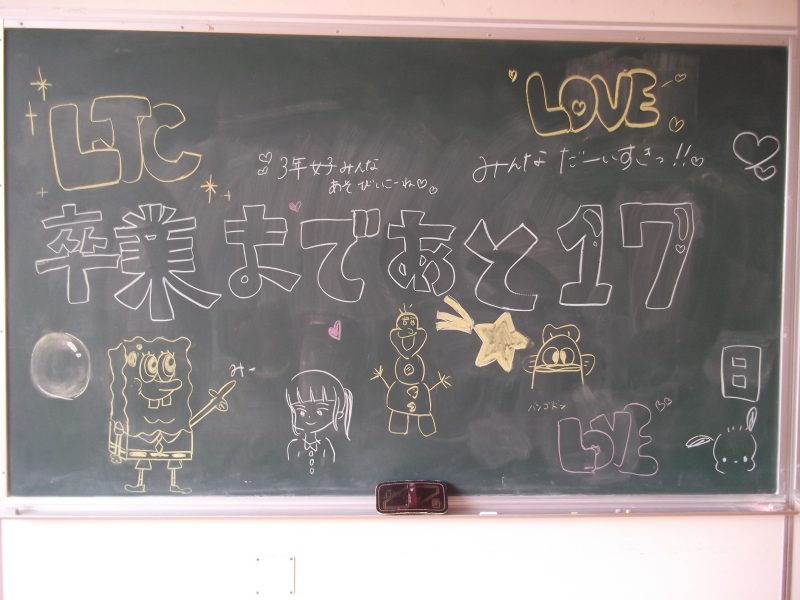 LTC
LOVE
3年女子みんな
あそびいこーね♡
みんな だーいすきっ!!♡
卒業まであと17
日
みー
ハンギョドン
LOVE